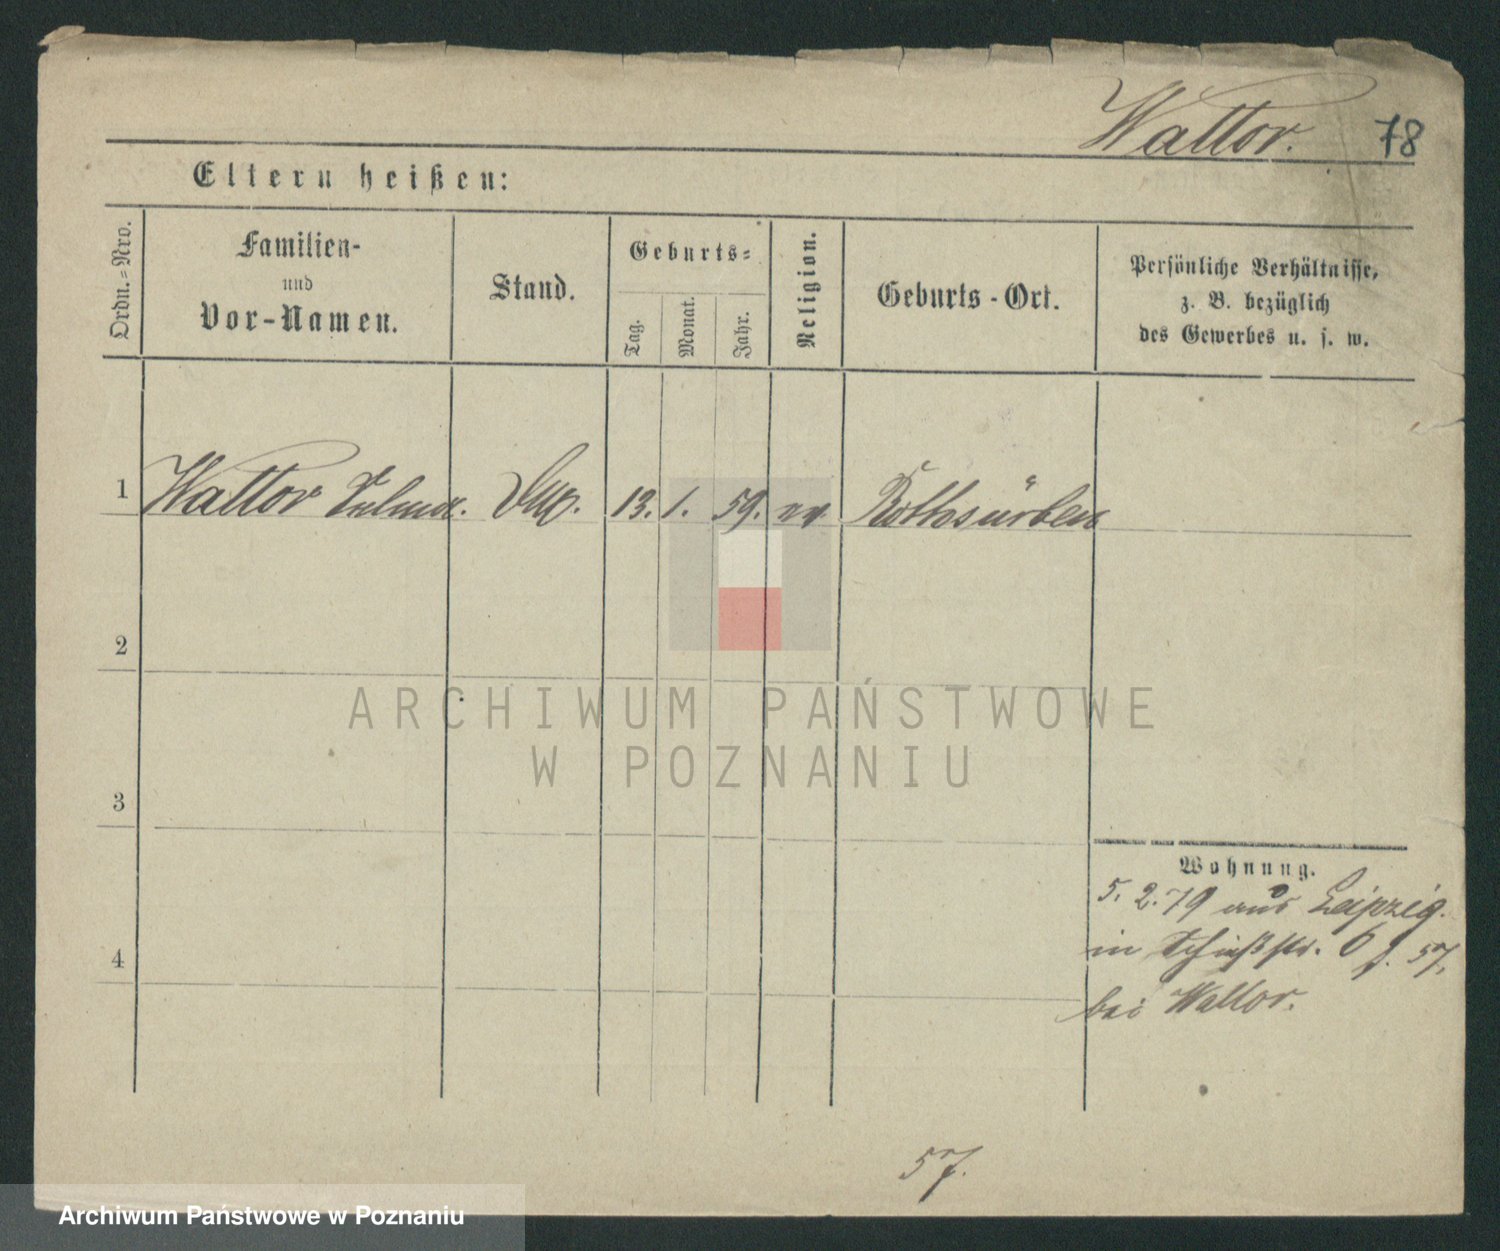 Wattor. 78
Eltern heißen:
Ordn.=Nro.
Familien-
und
Vor-Namen.
Stand.
Geburts=
Tag.
Monat.
Jahr.
Religion.
Geburts-Ort.
Persönliche Verhältnisse,
z. B. bezüglich
des Gewerbes u. s. w.
1 Wattor 13. 1. 59. ev Rothsürben
2
ARCHIWUM PAŃSTWOWE
W POZNANIU
3
Wohnung.
5. 2. 79 aus Leipzig.
in Schießstr. 6 f. 57.
4
bei Wattor.
57.
Archiwum Państwowe w Poznaniu